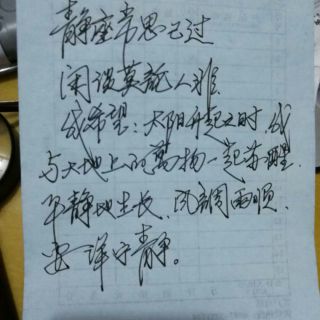 静座常思己过
闲谈莫說人非
我希望：太阳升起之时，我
与大地上的萬物一起苏醒.
平静地生长、风調雨顺、
安详宁静。